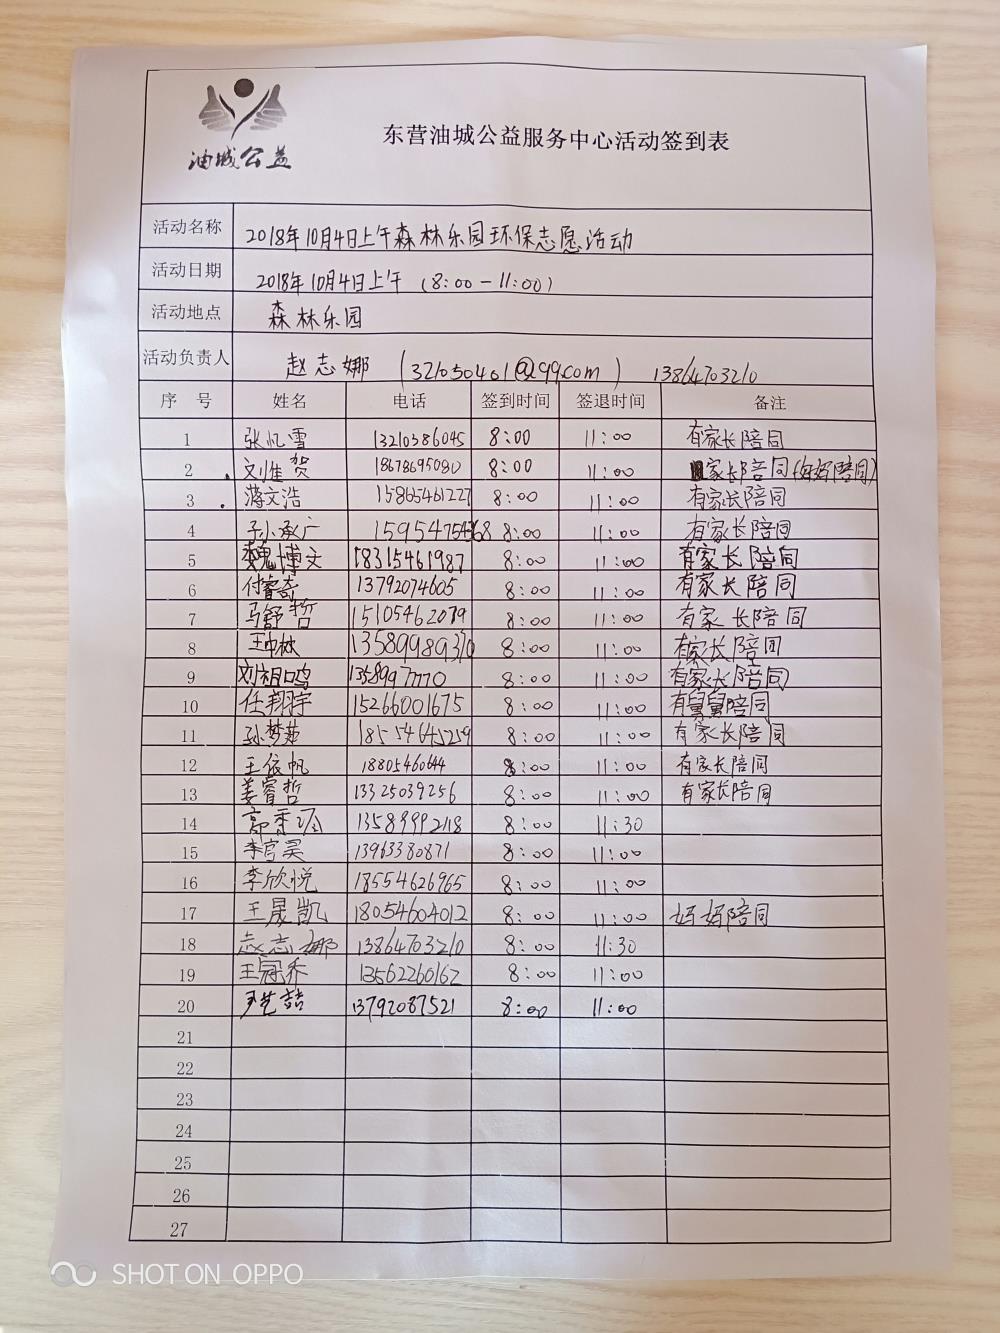 油城公益
东营油城公益服务中心活动签到表
活动名称 2018年10月4日上午森林乐园环保志愿活动
活动日期 2018年10月4日上午 (8:00-11:00)
活动地点 森林乐园
活动负责人 赵志娜 (321050401@qq.com) 13864703210
序号 姓名 电话 签到时间 签退时间 备注
1 张忆雪 13210386045 8:00 11:00 有家长陪同
2 刘佳贺 18678695080 8:00 11:00 家长陪同(妈妈陪同)
3 蒋文浩 15865461227 8:00 11:00 有家长陪同
4 孙承广 15954754368 8:00 11:00 有家长陪同
5 魏博文 18315461987 8:00 11:00 有家长陪同
6 付睿奇 13792074605 8:00 11:00 有家长陪同
7 马舒哲 15105462079 8:00 11:00 有家长陪同
8 13589989370 8:00 11:00 有家长陪同
9 刘相鸣 13589977770 8:00 11:00 有家长陪同
10 任翔宇 15266001675 8:00 11:00 有舅舅陪同
11 孙梦茹 18554645259 8:00 11:00 有家长陪同
12 王依帆 18805460644 8:00 11:00 有家长陪同
13 姜睿哲 13325039256 8:00 11:00 有家长陪同
14 13589992118 8:00 11:30
15 李官昊 13963380871 8:00 11:00
16 李欣悦 18554626965 8:00 11:00
17 王晟凯 18054604012 8:00 11:00 妈妈陪同
18 赵志娜 13864703210 8:00 11:30
19 王冠乔 13562260162 8:00 11:00
20 尹艺喆 13792087521 8:00 11:00
21
22
23
24
25
26
27
SHOT ON OPPO